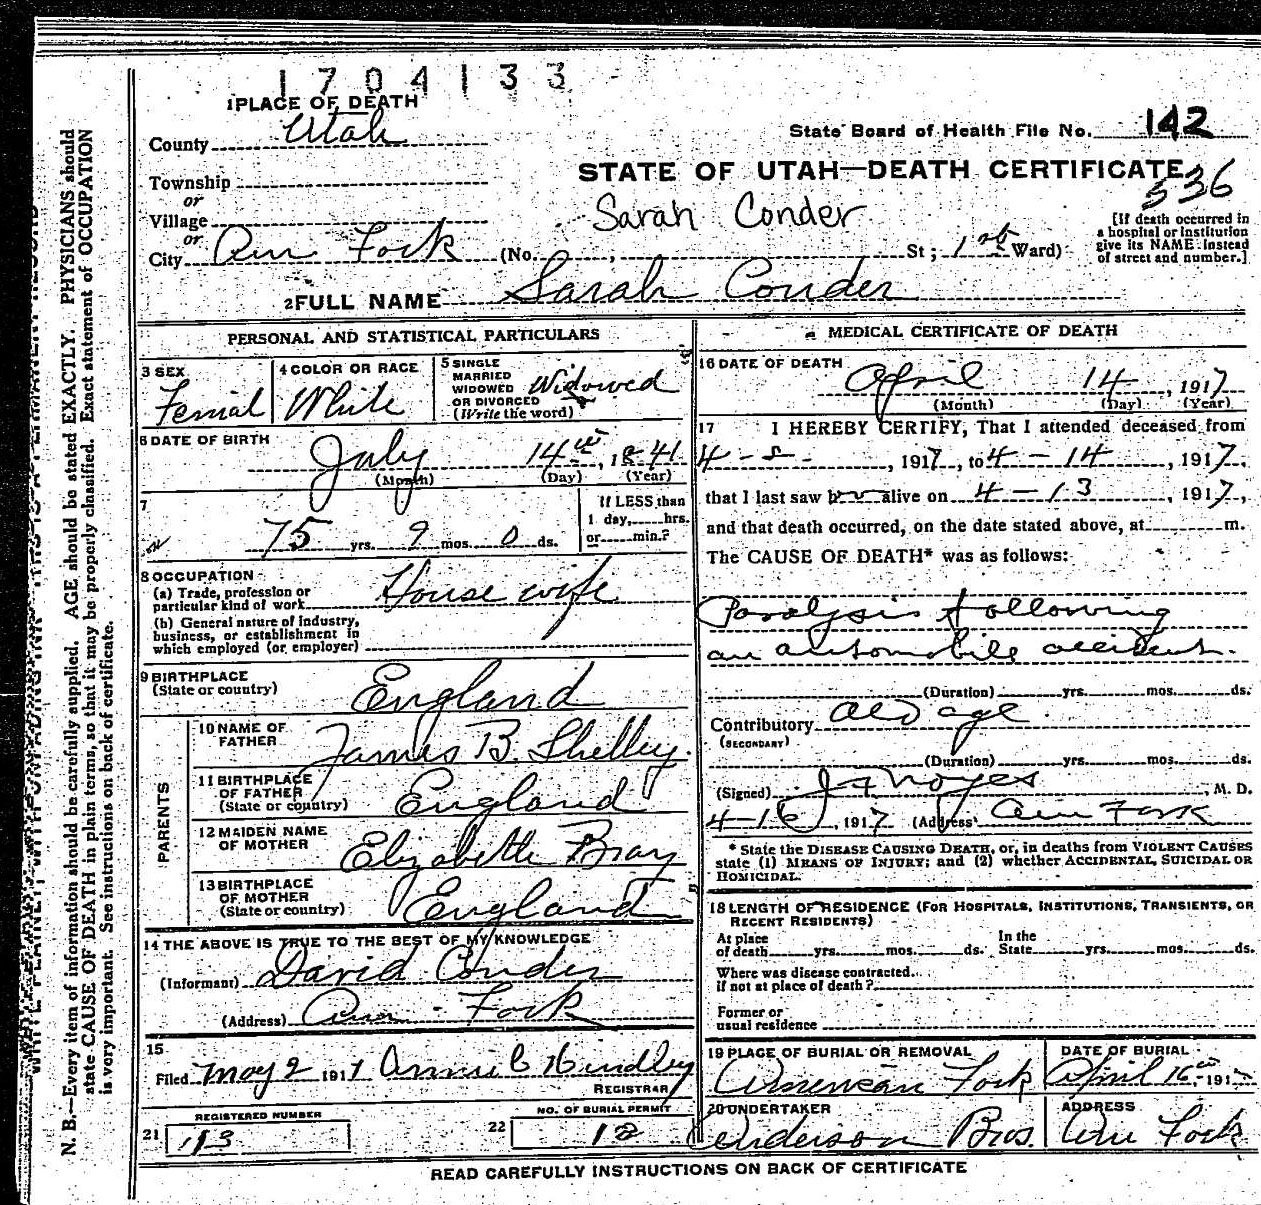 1704133
1 PLACE OF DEATH
County Utah
State Board of Health File No. 142
Township
or
STATE OF UTAH—DEATH CERTIFICATE
336
Village
or
Sarah Conder
[If death occurred in
a hospital or institution
give its NAME instead
of street and number.]
City Am Fork (No. , St; 1st Ward)
2 FULL NAME Sarah Conder
PERSONAL AND STATISTICAL PARTICULARS
3 SEX
Femial
4 COLOR OR RACE
White
5 SINGLE
MARRIED
WIDOWED
OR DIVORCED
(Write the word)
Widowed
6 DATE OF BIRTH
July 14th, 1841
(Month) (Day) (Year)
7
75 yrs. 9 mos. 0 ds.
If LESS than
1 day, hrs.
or min.?
8 OCCUPATION
(a) Trade, profession or
particular kind of work House wife
(b) General nature of industry,
business, or establishment in
which employed (or employer)
9 BIRTHPLACE
(State or country) England
PARENTS
10 NAME OF
FATHER James B. Shelley.
11 BIRTHPLACE
OF FATHER
(State or country) England
12 MAIDEN NAME
OF MOTHER Elizabeth Bray
13 BIRTHPLACE
OF MOTHER
(State or country) England
14 THE ABOVE IS TRUE TO THE BEST OF MY KNOWLEDGE
(Informant) David Conder
(Address) Am Fork
15
Filed May 2 1917 Annie C Hindley
REGISTRAR
REGISTERED NUMBER
21 113
NO. OF BURIAL PERMIT
22 12
MEDICAL CERTIFICATE OF DEATH
16 DATE OF DEATH
April 14, 1917
(Month) (Day) (Year)
17 I HEREBY CERTIFY, That I attended deceased from
4-8-, 1917, to 4-14, 1917,
that I last saw her alive on 4-13, 1917,
and that death occurred, on the date stated above, at m.
The CAUSE OF DEATH* was as follows:
Paralysis following
an automobile accident.
(Duration) yrs. mos. ds.
Contributory Old age
(SECONDARY)
(Duration) yrs. mos. ds.
(Signed) J F Noyes, M. D.
4-16, 1917 (Address) Am Fork
* State the DISEASE CAUSING DEATH, or, in deaths from VIOLENT CAUSES
state (1) MEANS OF INJURY; and (2) whether ACCIDENTAL, SUICIDAL OR
HOMICIDAL.
18 LENGTH OF RESIDENCE (FOR HOSPITALS, INSTITUTIONS, TRANSIENTS, OR
RECENT RESIDENTS)
At place
of death yrs. mos. ds.
In the
State yrs. mos. ds.
Where was disease contracted
if not at place of death?
Former or
usual residence
19 PLACE OF BURIAL OR REMOVAL
American Fork
DATE OF BURIAL
April 16th 1917
20 UNDERTAKER
Anderson Bros.
ADDRESS
Am Fork
READ CAREFULLY INSTRUCTIONS ON BACK OF CERTIFICATE
WRITE PLAINLY WITH UNFADING INK—THIS IS A PERMANENT RECORD
N. B.—Every item of information should be carefully supplied. AGE should be stated EXACTLY. PHYSICIANS should
state CAUSE OF DEATH in plain terms, so that it may be properly classified. Exact statement of OCCUPATION
is very important. See instructions on back of certificate.